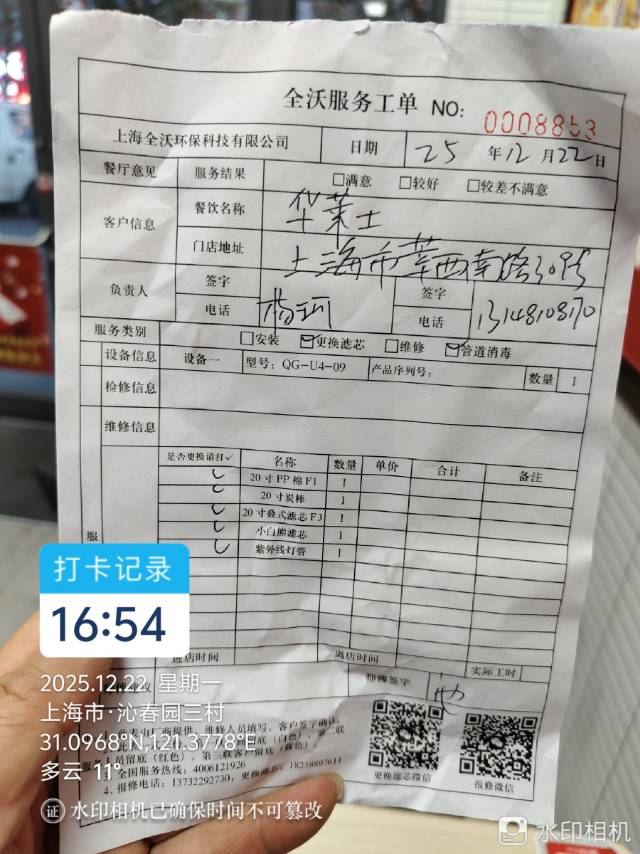 全沃服务工单 NO: 0008853
上海全沃环保科技有限公司 日期 25 年 12 月 22 日
餐厅意见 服务结果 □满意 □较好 □较差不满意
客户信息 餐饮名称 华莱士
门店地址 上海市莘西南路309号
负责人 签字 杨 签字
电话 电话 13148108170
服务类别 □安装 ☑更换滤芯 □维修 ☑管道消毒
设备信息 设备一 型号: QG-U4-09 产品序列号: 数量 1
检修信息
维修信息
服
是否更换请打✓ 名称 数量 单价 合计 备注
✓ 20寸PP棉F1 1
✓ 20寸炭棒 1
✓ 20寸叠式滤芯F3 1
✓ 小白熊滤芯 1
✓ 紫外线灯管 1
进店时间 离店时间 实际工时
师傅签字
表由厂商提供、维修人员填写、客户签字确认,
底(白色)、第二联
人员留底(红色)、第三联客户留底(蓝色)。
全国服务热线: 4006121926
4、报修电话: 13732292730、更换滤芯: 18258897611
更换滤芯微信 报修微信
打卡记录
16:54
2025.12.22 星期一
上海市·沁春园三村
31.0968°N,121.3778°E
多云 11°
证 水印相机已确保时间不可篡改
水印相机